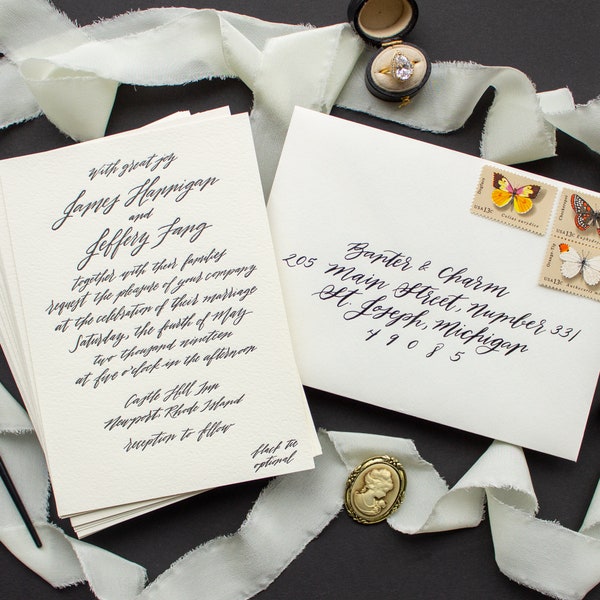 with great joy
James Hannigan
and
Jeffery Fang
together with their families
request the pleasure of your company
at the celebration of their marriage
Saturday, the fourth of May
two thousand nineteen
at five o'clock in the afternoon
Castle Hill Inn
Newport, Rhode Island
reception to follow
black tie
optional
Banter & Charm
205 Main Street, Number 331
St. Joseph, Michigan
49085
Dogface
USA13c Colias eurydice
USA13c
Orange-Tip
USA13c